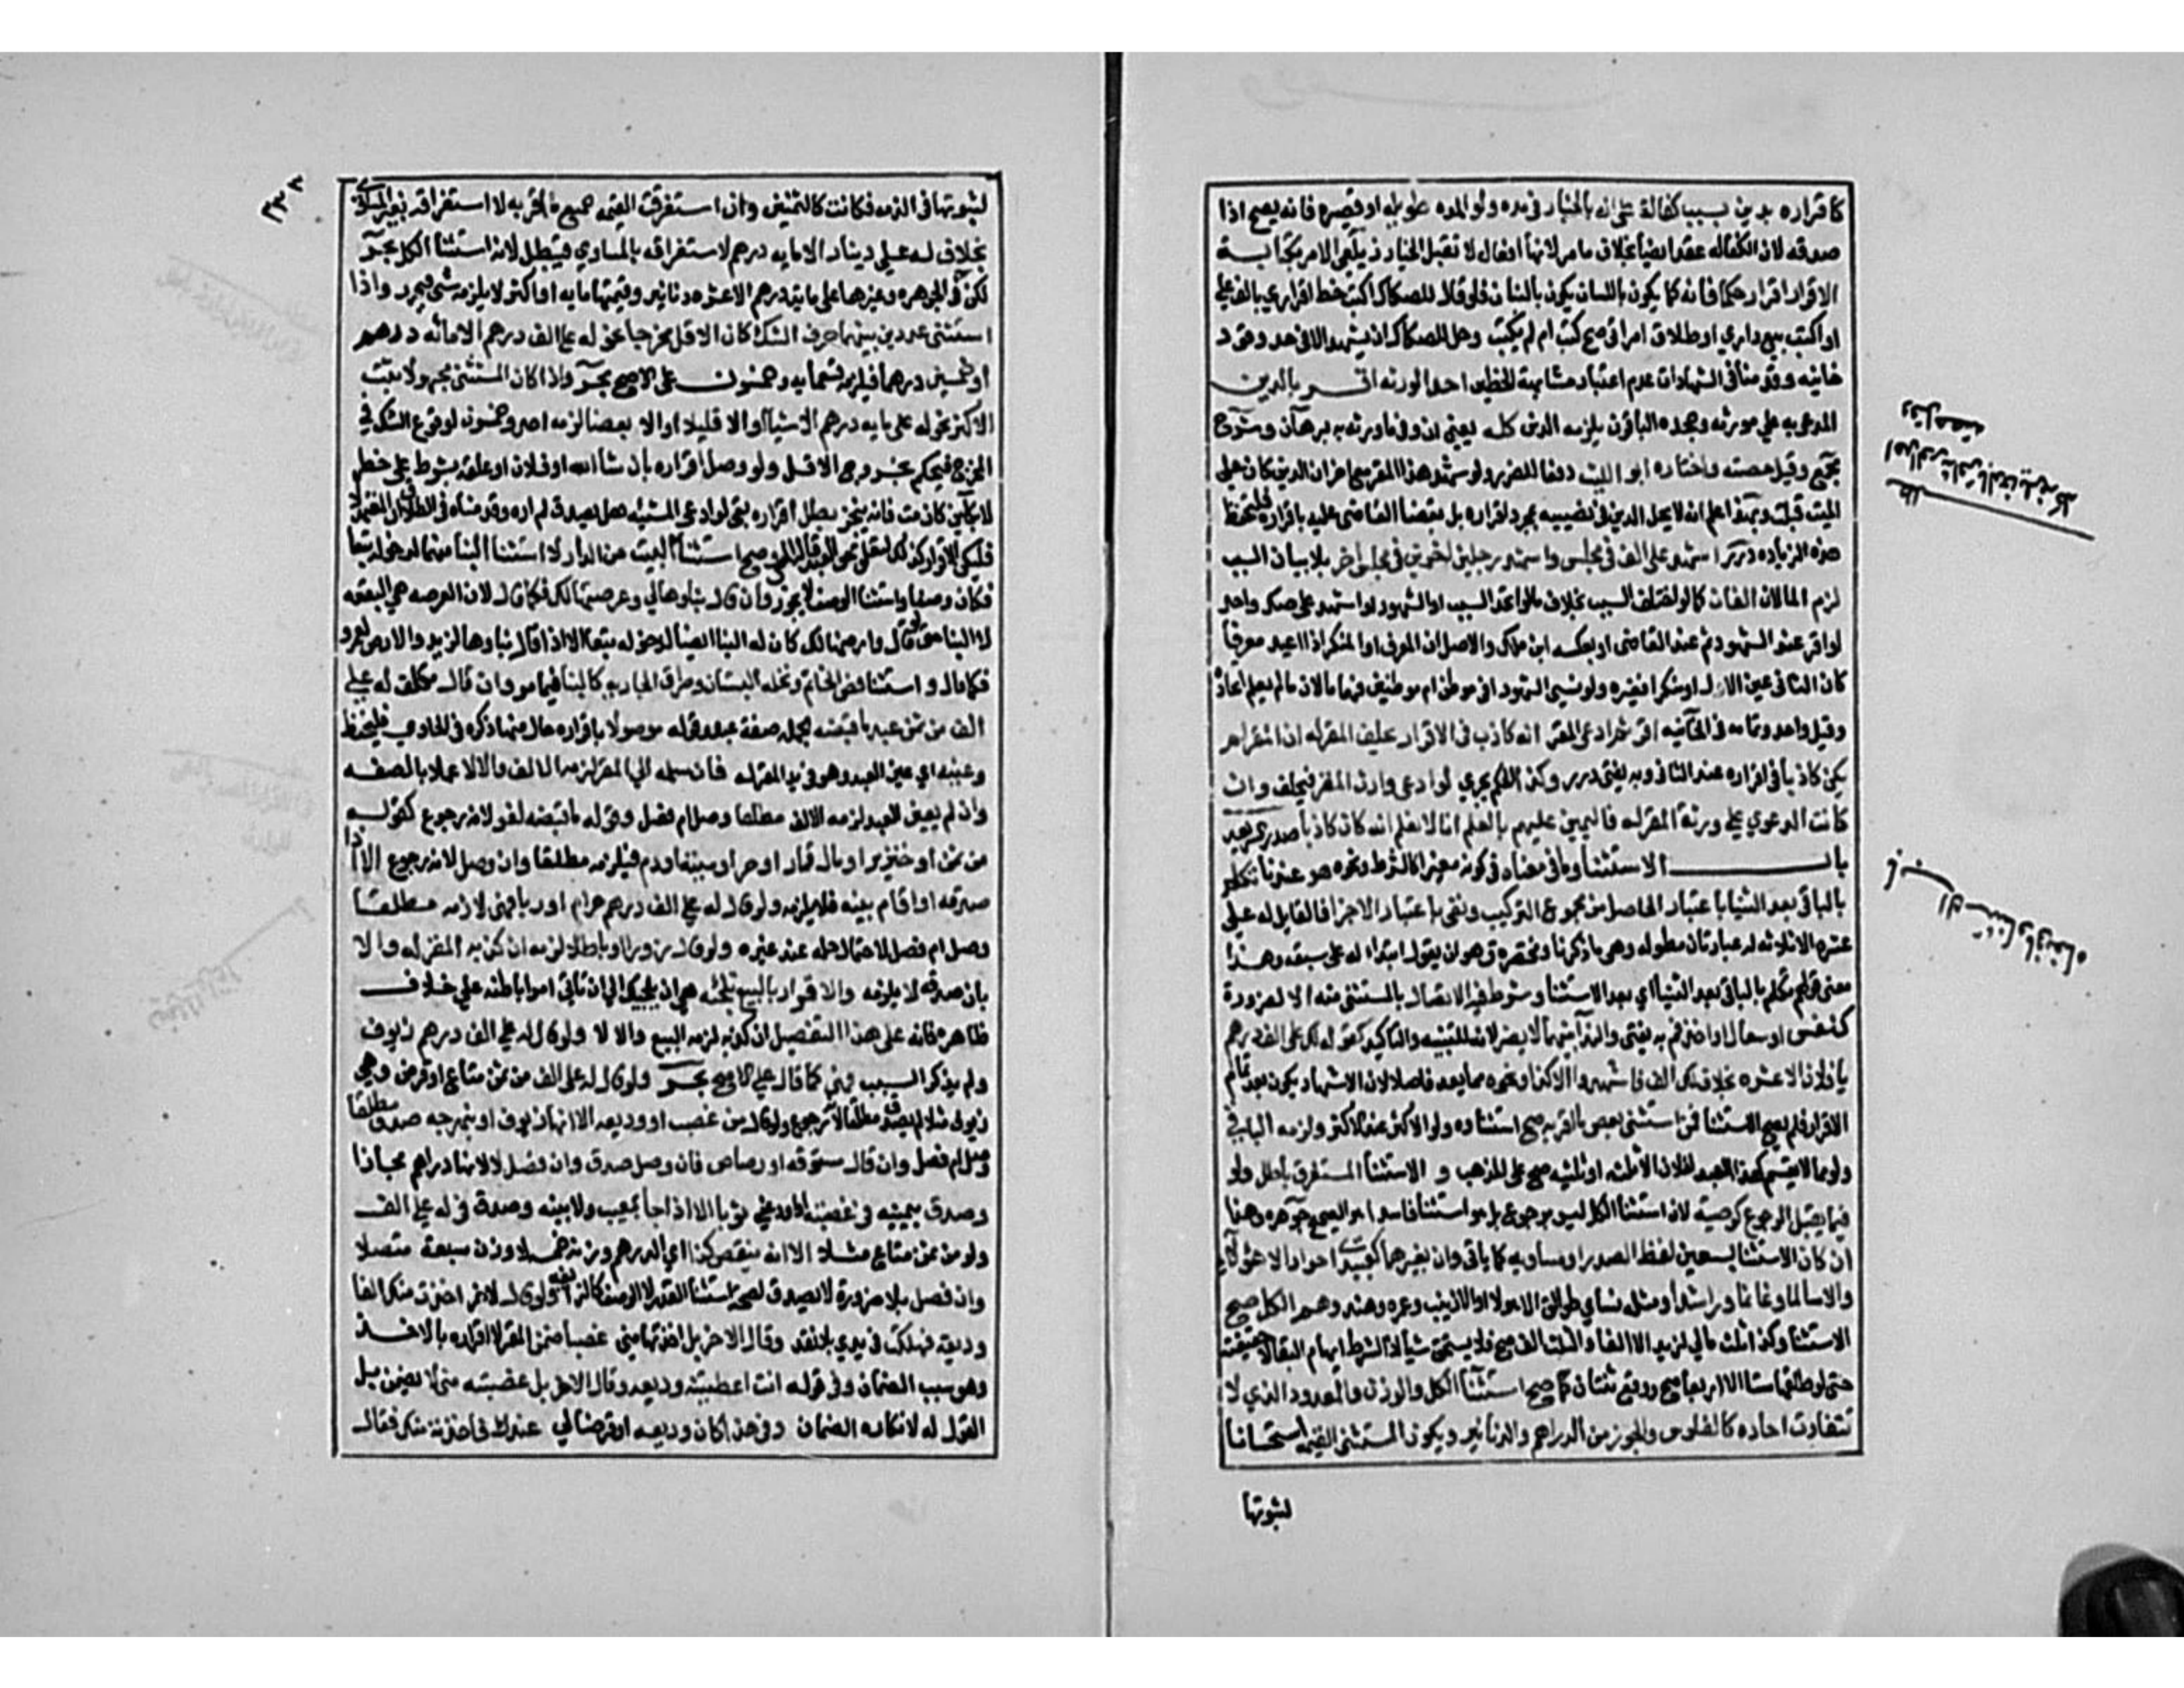 كاقراره بدين بسبب كفالة على انه بالخيار في مده ولو المده طويله او قصيره فانه يصح اذا
صدقه لان الكفاله عقد ايضا بخلاف ما مر لانها افعال لا تقبل الخيار زيلعي الامر بكتابة
الاقرار اقرار حكما فانه كما يكون باللسان يكون بالبنان فلو قال للصكاك اكتب خط اقراري بالف علي
او اكتب بيع داري او طلاق امراتي صح كتب ام لم يكتب وحل للصكاك ان يشهد الا في حد وقود
خانيه وقدمنا في الشهادات عدم اعتبار مشابهة الخطين احد الورثه اقر بالدين
المدعى به على مورثه وجحده الباقون يلزمه الدين كله يعني ان وفي ما ورثه به برهان وشرح
مجمع وقيل حصته واختاره ابو الليث دفعا للضرر ولو شهد هذا المقر مع اخر ان الدين كان على
الميت قبلت وبهذا علم انه لا يحل الدين في نصيبه بمجرد اقراره بل بقضا القاضي عليه باقراره فلتحفظ
هذه الزياده درر اشهد على الف في مجلس واشهد رجلين اخرين في مجلس اخر بلا بيان السبب
لزم المالان الفان كما لو اختلف السبب بخلاف ما لو اتحد السبب او الشهود او اشهد على صك واحد
او اقر عند الشهود ثم عند القاضي او بعكسه ابن ملك والاصل ان المعرف او المنكر اذا اعيد معرفا
كان الثاني عين الاول او منكرا فغيره ولو نسي الشهود افي موطن ام موطنين فهما مالان ما لم يعلم اتحاده
وقيل واحد وتمامه في الخانيه اقر ثم ادعى المقر انه كاذب في الاقرار يحلف المقر له ان المقر لم
يكن كاذبا في اقراره عند الثاني وبه يفتى درر وكذا الحكم يجري لو ادعى وارث المقر فيحلف وان
كانت الدعوى على ورثة المقر له فاليمين عليهم بالعلم انا لا نعلم انه كان كاذبا صدر الشريعه
باب الاستثنا وما في معناه في كونه مغيرا كالشرط ونحوه هو عندنا تكلم
بالباقي بعد الثنيا باعتبار الحاصل من مجموع التركيب ونفي باعتبار الاجزا فالقايل له علي
عشره الا ثلاثه له عبارتان مطوله وهي ما ذكرنا ومختصره وهو ان يقول ابتدا له علي سبعه وهذا
معنى قولهم تكلم بالباقي بعد الثنيا اي بعد الاستثنا وشرط فيه الاتصال بالمستثنى منه الا لضرورة
كنفس او سعال او اخذ فم به يفتى والندا بينهما لا يضر لانه للتنبيه والتاكيد كقوله لك علي الف درهم
يا فلان الا عشره بخلاف لك الف فاشهدوا الا كذا ونحوه مما يعد فاصلا لان الاشهاد يكون بعد تمام
الاقرار فلم يصح الاستثنا فمن استثنى بعض ما اقر به صح استثناوه ولو الاكثر عند الاكثر ولزمه الباقي
ولو مما لا يقسم كهذا العبد لفلان الا ثلثه او ثلثيه صح على المذهب و الاستثنا المستغرق باطل ولو
فيما يقبل الرجوع كوصية لان استثنا الكل ليس برجوع بل هو استثنا فاسد هو الصحيح جوهره وهذا
ان كان الاستثنا بعين لفظ الصدر او مساويه كما ياتي وان بغيرهما كعبيدي احرار الا هولا
والا سالما وغانما وراشدا ومثله نساي طوالق الا هولا او الا زينب وعمره وهند وهم الكل صح
الاستثنا وكذا ثلث مالي لزيد الا الفا والثلث الف صح فلا يستحق شيا اذ الشرط ايهام البقا لا حقيقته
حتى لو طلقها ستا الا اربعا صح ووقع ثنتان كما صح استثنا الكيلي والوزني والمعدود الذي لا
تتفاوت احاده كالفلوس والجوز من الدراهم والدنانير ويكون المستثنى القيمه استحسانا
لثبوتها
مطلب
احد الورثه
وقيل حصته
باب الاستثنا وما في معناه
٢٣٣
لثبوتها في الذمه فكانت كالثمنين وان استغرقت القيمه جميع ما اقر به لاستغراقه بغير المساوي
بخلاف له علي دينار الا مايه درهم لاستغراقه بالمساوي فيبطل لانه استثنا الكل بحر
لكن في الجوهره وغيرها علي مايه درهم الا عشره دنانير وقيمتها مايه او اكثر لا يلزمه شي فيحرر واذا
استثنى عددين بينهما حرف الشك كان الاقل مخرجا نحو له علي الف درهم الا مائه درهم
او خمسين درهما فيلزمه تسعمايه وخمسون على الاصح بحر واذا كان المستثنى مجهولا ثبت
الاكثر نحو له علي مايه درهم الا شيا او الا قليلا او الا بعضا لزمه احد وخمسون لوقوع الشك في
المخرج فيحكم بخروج الاقل ولو وصل اقراره بان شا الله او فلان او علقه بشرط على خطر
لا بكاين كان مت فانه ينجز بطل اقراره بقي لو ادعى المشيه هل يصدق لم اره وقدمنا في الطلاق ان المعتمد لا
فليكن الاقرار كذلك لتعلق حق العبد قاله المص صح استثنا البيت من الدار لا استثنا البنا منها لدخوله تبعا
فكان وصفا واستثنا الوصف لا يجوز وان قال بناوها لي وعرصتها لك فكما قال لان العرصه هي البقعه
لا البنا حتى لو قال وارضها لك كان له البنا ايضا لدخوله تبعا الا اذا قال بناوها لزيد والارض لعمرو
فكما قال و استثنا فص الخاتم ونخله البستان وطوق الجاريه كالبنا فيما مر وان قال مكلف له علي
الف من ثمن عبد ما قبضته الجمله صفة عبد وقوله موصولا باقراره حال منها ذكره في الحاوي فليحفظ
وعينه اي عين العبد وهو في يد المقر له فان سلمه الي المقر لزمه الالف والا لا عملا بالصفه
وان لم يعين العبد لزمه الالف مطلقا وصل ام فصل وقوله ما قبضته لغو لانه رجوع كقوله
من ثمن او خنزير او مال قمار او حر او ميته او دم فيلزمه مطلقا وان وصل لانه رجوع الا اذا
صدقه او اقام بينه فلا يلزمه ولو قال له علي الف درهم حرام او ربا فهي لازمه مطلقا
وصل ام فصل لاحتمال حله عند غيره ولو قال زورا او باطلا لزمه ان كذبه المقر له والا
بان صدقه لا يلزمه والاقرار بالبيع تلجئه هي ان يلجيك الي ان تاتي امرا باطنه علي خلاف
ظاهره فانه على هذا التفصيل ان كذبه لزمه البيع والا لا ولو قال له علي الف درهم زيوف
ولم يذكر السبب فهي كما قال علي الاصح بحر ولو قال له علي الف من ثمن متاع او قرض وهي
زيوف مثلا لم يصدق مطلقا لانه رجوع ولو قال من غصب او وديعه الا انها زيوف او نبهرجه صدق مطلقا
وصل ام فصل وان قال ستوقه او رصاص فان وصل صدق وان فصل لا لانها دراهم مجازا
وصدق بيمينه في غصبته او اودعني ثوبا اذا جا بمعيب ولا بينه وصدق في له علي الف
ولو من ثمن متاع مثلا الا انه ينقص كذا اي الدرهم وزن خمسه لا وزن سبعه متصلا
وان فصل بلا ضرورة لا يصدق لصحة استثنا القدر لا الوصف كالزيافه ولو قال لاخر اخذت منك الفا
وديعه فهلكت في يدي بلا تعد وقال الاخر بل اخذتها مني غصبا ضمن المقر لاقراره بالاخذ
وهو سبب الضمان وفي قوله انت اعطيتنيه وديعه وقال الاخر بل غصبته مني لا يضمن بل
القول له لانكاره الضمان وفي هذا كان وديعه او قرضا لي عندك فاخذته منك فقال